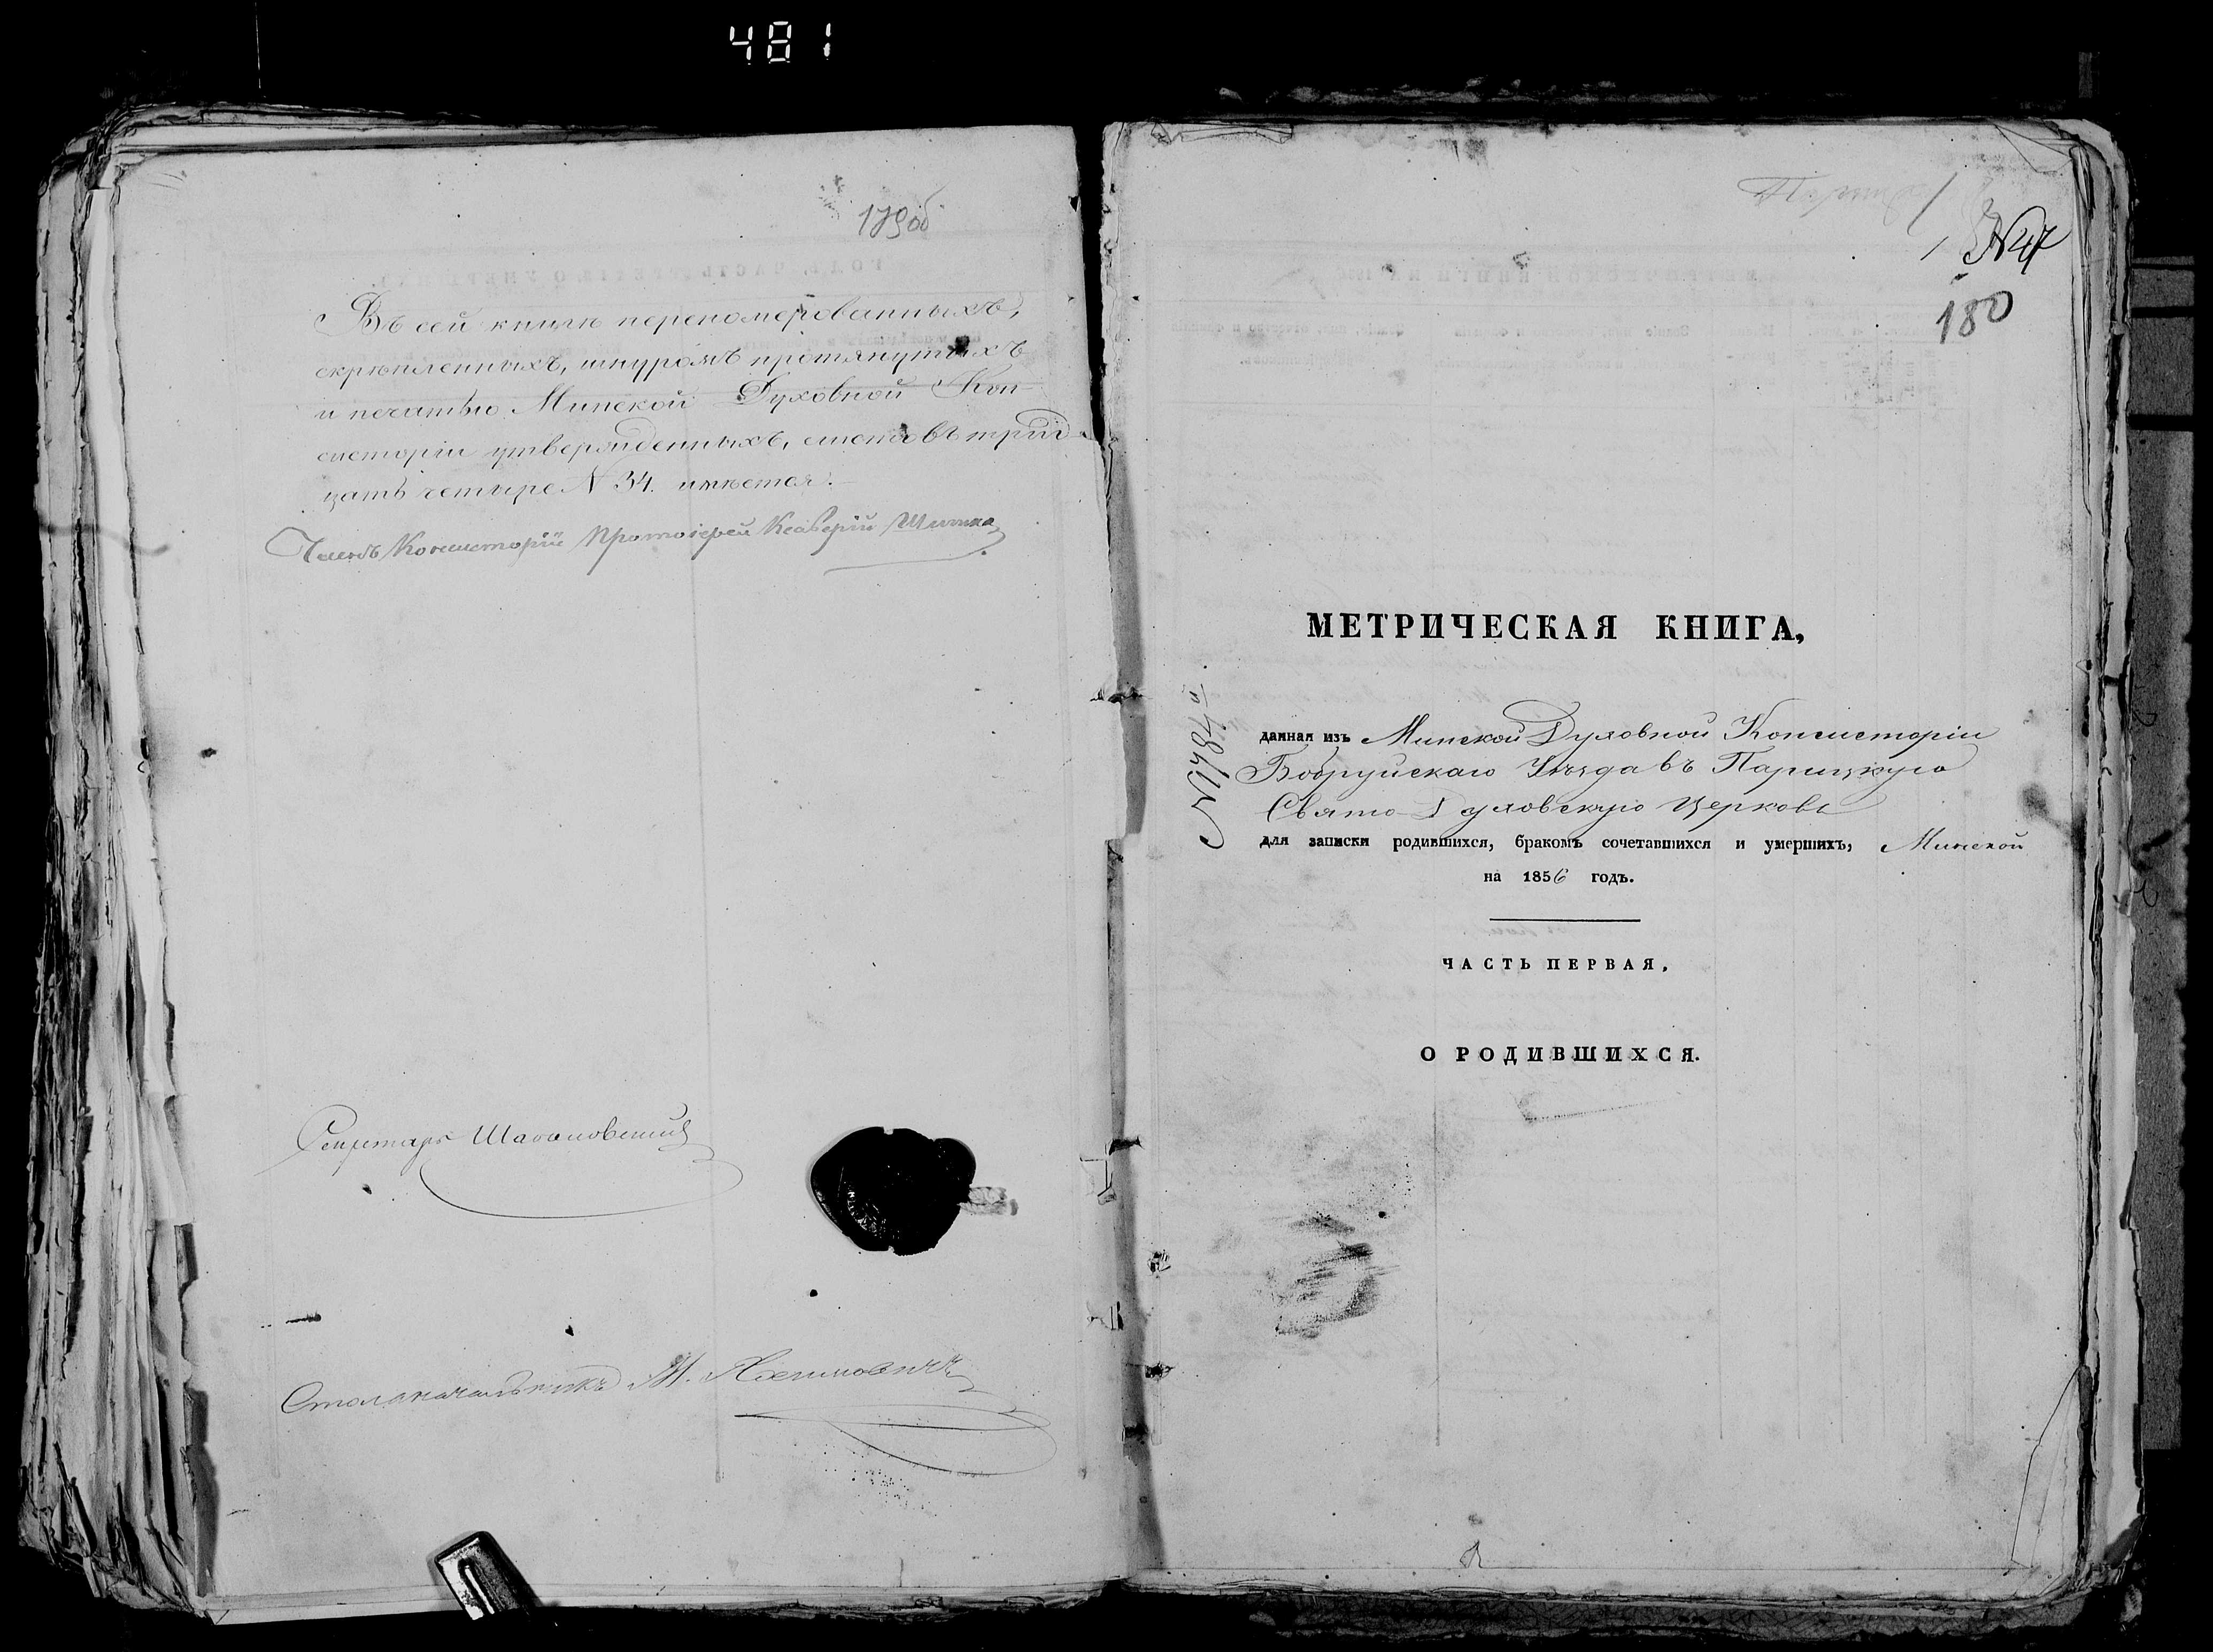 481
179об
Въ сей книгѣ перепомерованныхъ,
скрѣпленныхъ, шнуромъ протянутыхъ
и печатью Минской Духовной Кон-
систоріи утвержденныхъ, листовъ трид-
цать четыре N 34. имѣется.
Членъ Консисторіи Протоіерей Ксаверій
Секретарь
Столоначальникъ М.
N 47
180
МЕТРИЧЕСКАЯ КНИГА,
N 1784й
данная изъ Минской Духовной Консисторіи
Бобруйскаго Уѣзда въ Парицкую
Свято-Духовскую Церковь
для записки родившихся, бракомъ сочетавшихся и умершихъ, Минской
на 1856 годъ.
ЧАСТЬ ПЕРВАЯ,
О РОДИВШИХСЯ.